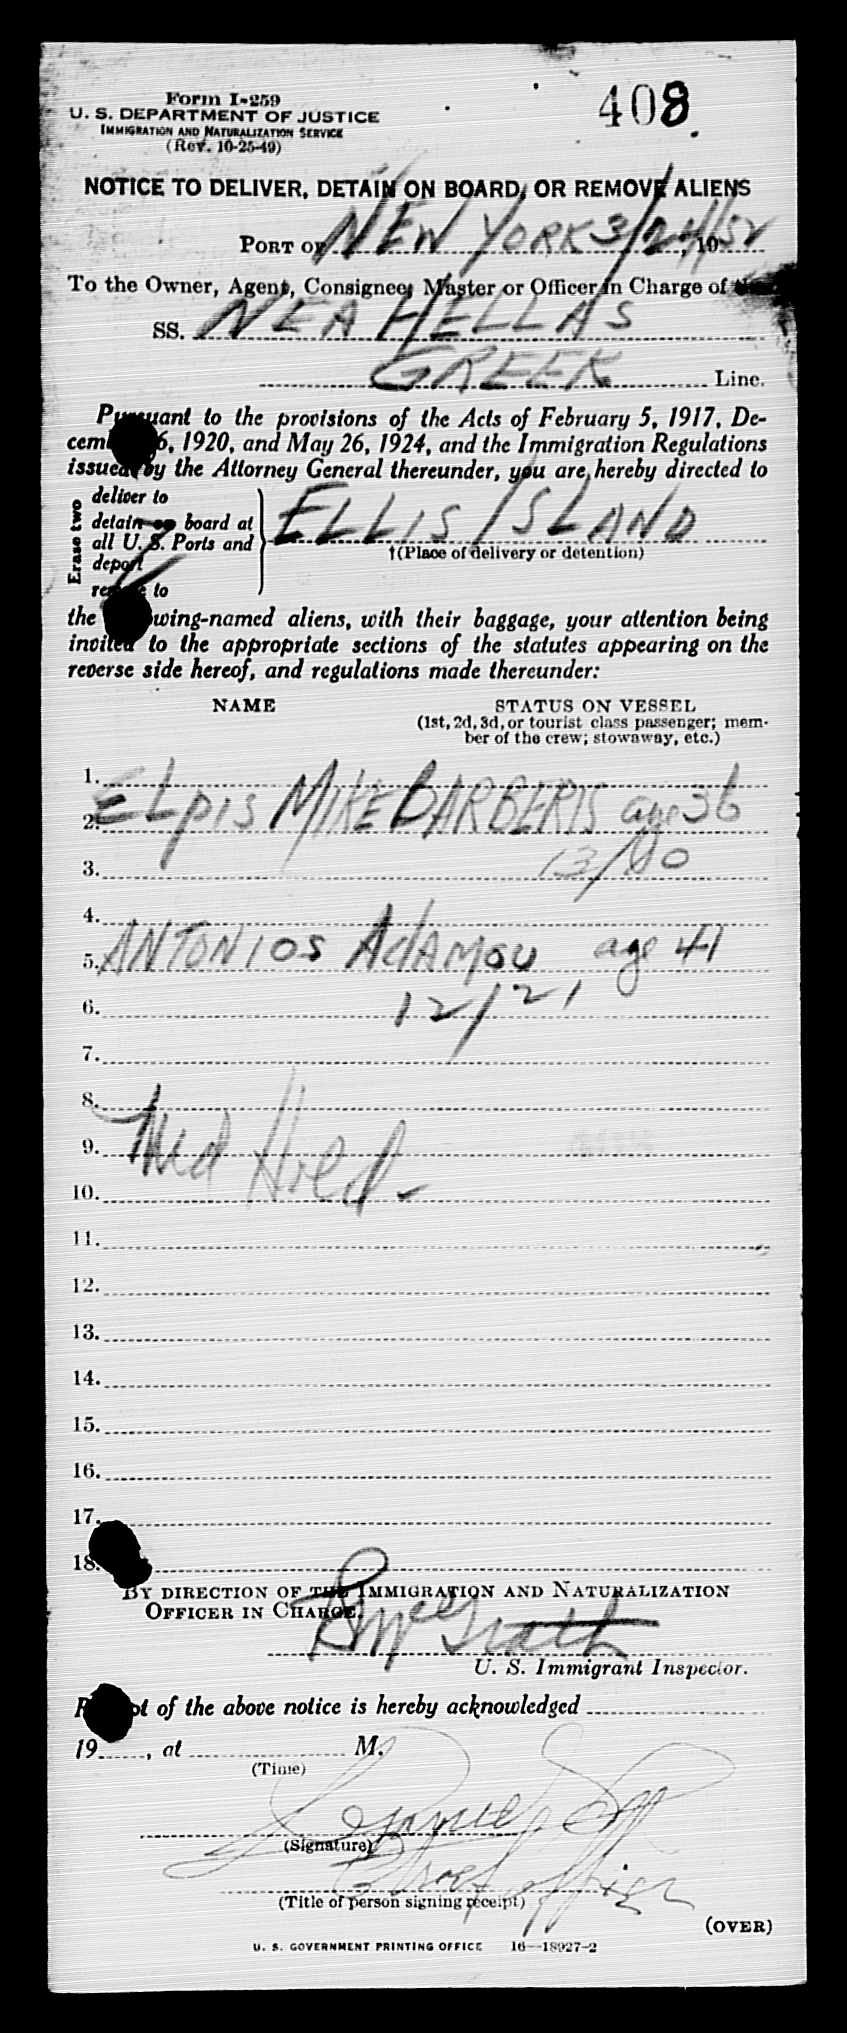 Form I-259
408
U. S. DEPARTMENT OF JUSTICE
IMMIGRATION AND NATURALIZATION SERVICE
(Rev. 10-25-49)
NOTICE TO DELIVER, DETAIN ON BOARD, OR REMOVE ALIENS
PORT OF NEW YORK 3/24/52, 19
To the Owner, Agent, Consignee, Master or Officer in Charge of the
SS. NEA HELLAS
GREEK Line.
Pursuant to the provisions of the Acts of February 5, 1917, De-
cember 26, 1920, and May 26, 1924, and the Immigration Regulations
issued by the Attorney General thereunder, you are hereby directed to
Erase two
deliver to
detain on board at
all U. S. Ports and
deport
remove to
ELLIS ISLAND
†(Place of delivery or detention)
the following-named aliens, with their baggage, your attention being
invited to the appropriate sections of the statutes appearing on the
reverse side hereof, and regulations made thereunder:
NAME STATUS ON VESSEL
(1st, 2d, 3d, or tourist class passenger; mem-
ber of the crew; stowaway, etc.)
1.
2. ELPIS MIKE BARBERIS age 36
3. 13/00
4.
5. ANTONIOS ADAMOU age 41
6. 12/21
7.
8.
9. Med Hold
10.
11.
12.
13.
14.
15.
16.
17.
18.
BY DIRECTION OF THE IMMIGRATION AND NATURALIZATION
OFFICER IN CHARGE.
McGrath
U. S. Immigrant Inspector.
Receipt of the above notice is hereby acknowledged
19, at M.
(Time)
(Signature)
Chief Officer
(Title of person signing receipt)
(OVER)
U. S. GOVERNMENT PRINTING OFFICE 16—18927-2